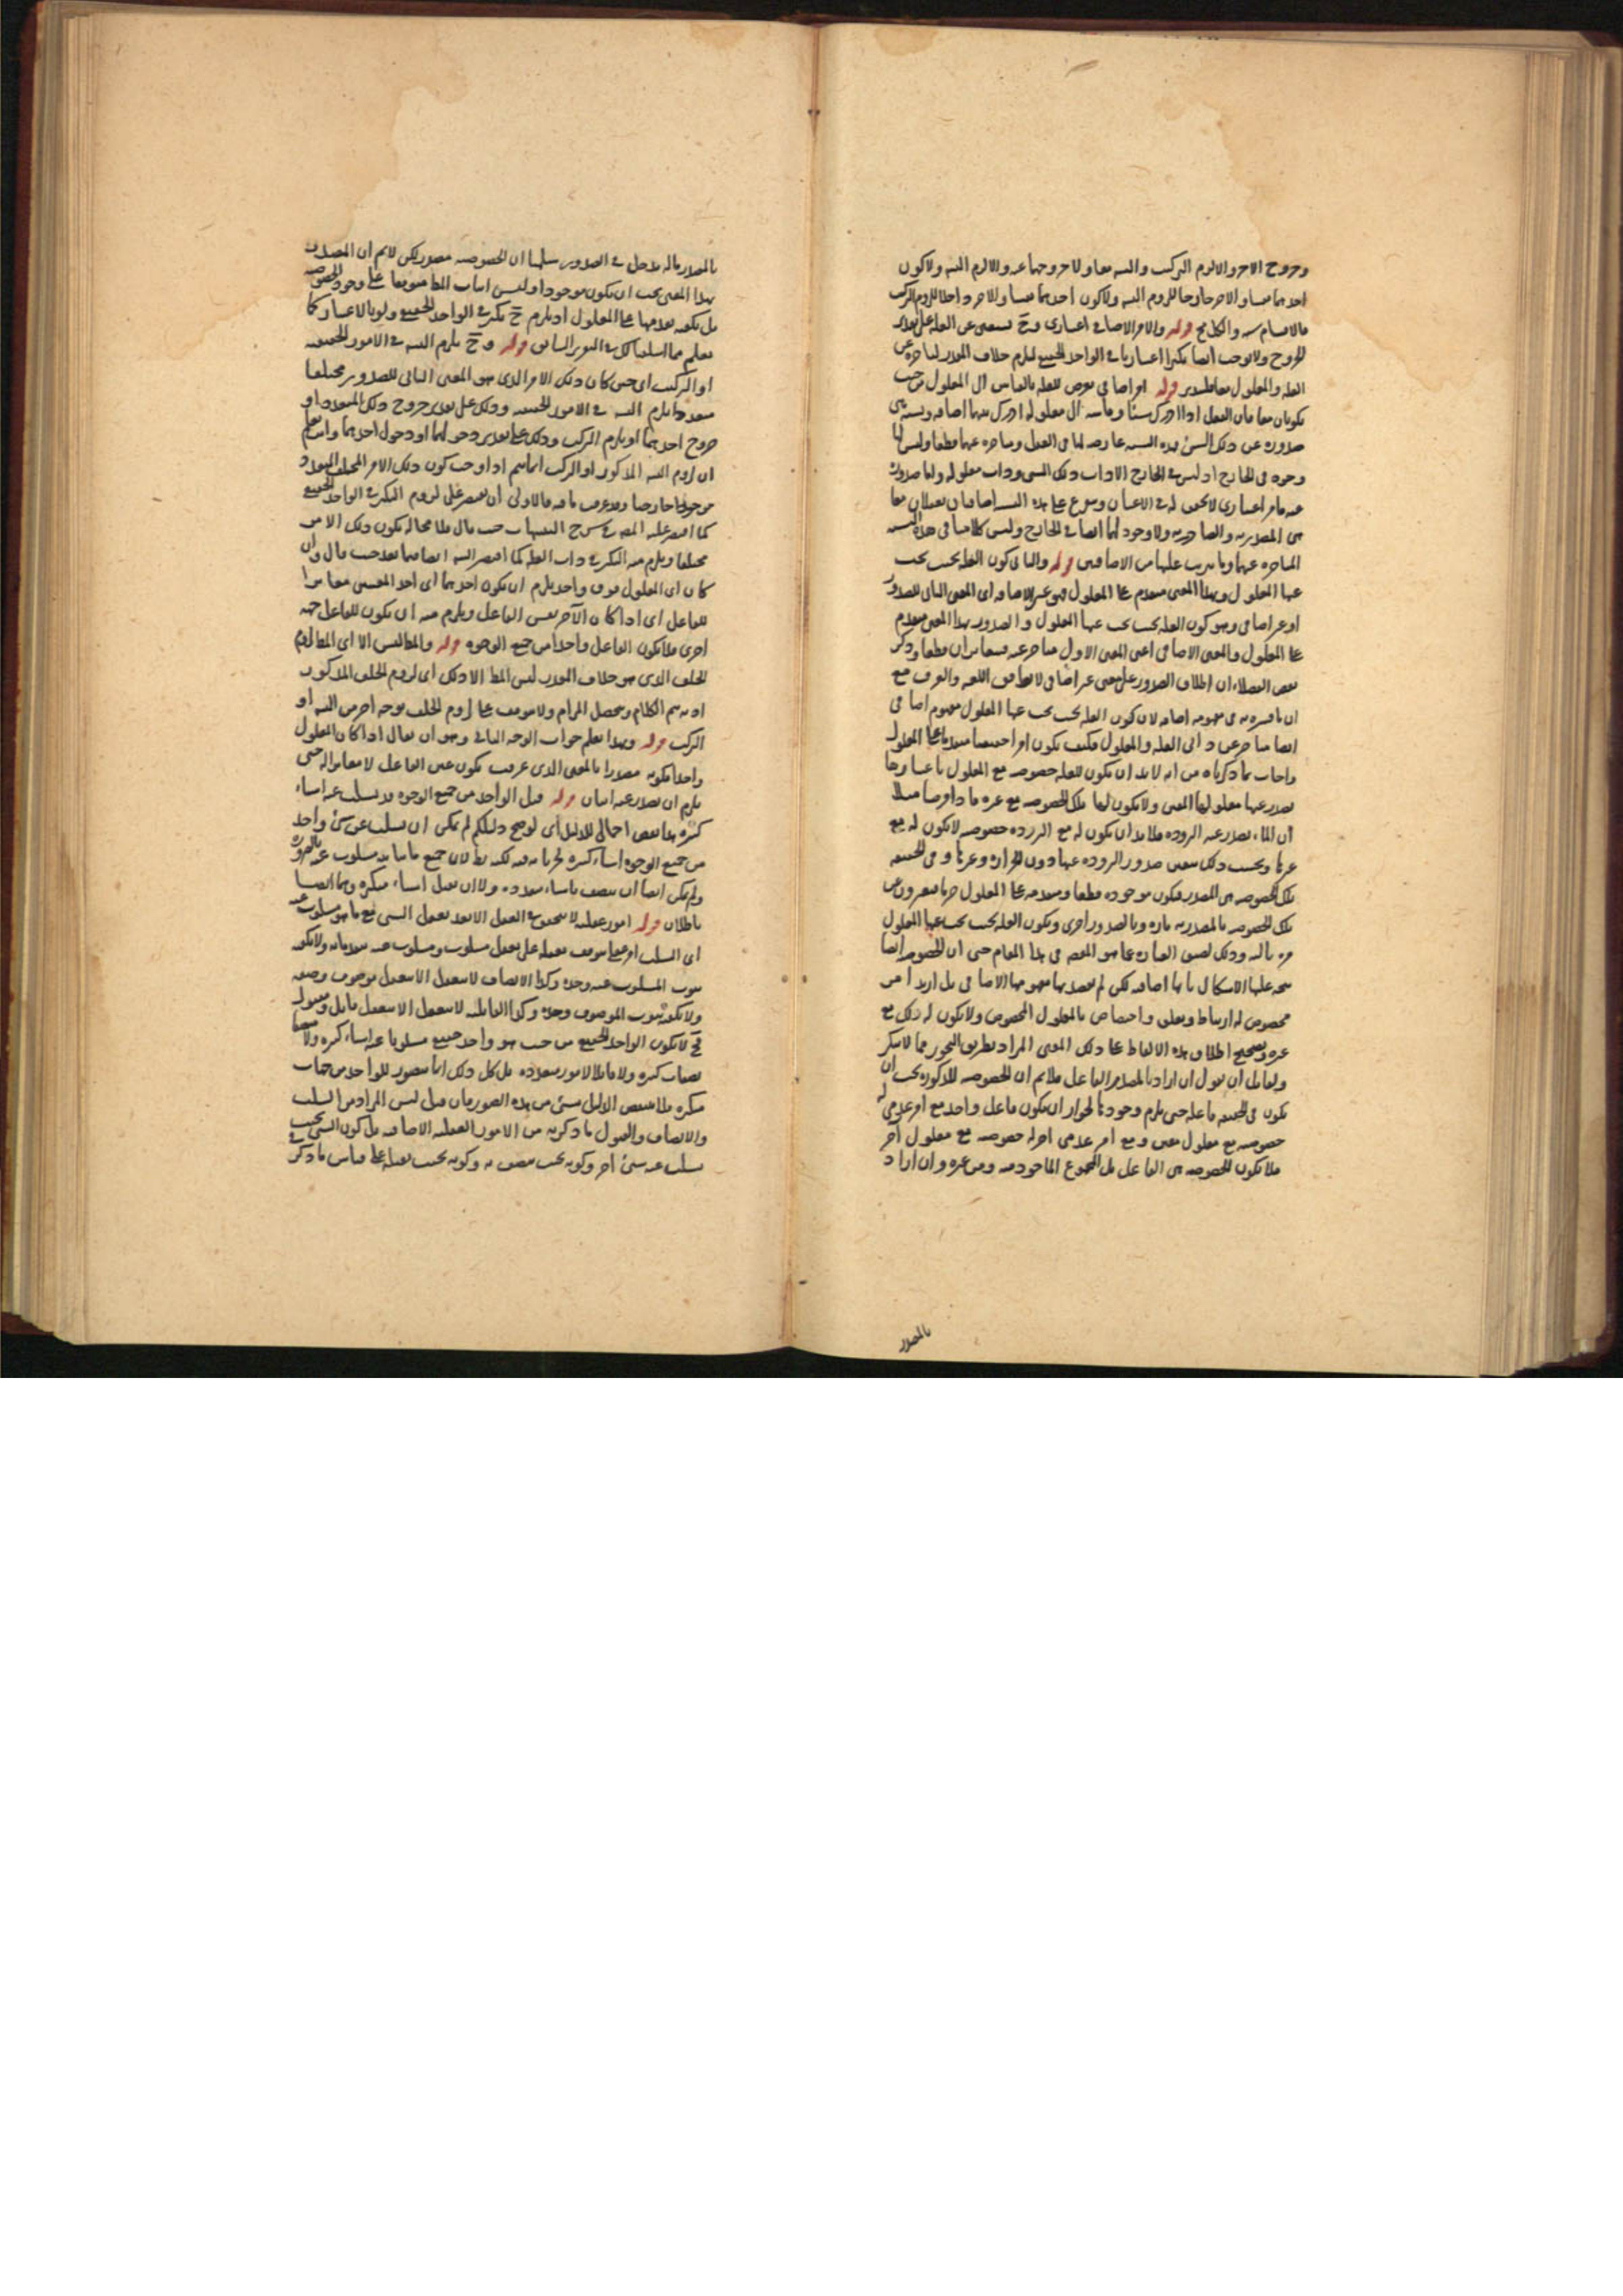 وخروج الآخر والا لزم التركيب والتسلسل معا ولا خروجهما عنه والا لزم التسلسل ولا كون
احدهما عينا والآخر خارجا للزوم التسلسل ولا كون احدهما عينا والآخر داخلا للزوم التركيب
فالاقسام ستة والكل مح قوله والامر الاضافى اعتبارى وح يستغنى عن العلة على تقدير
الخروج ولا يوجب ايضا تكثرا اعتباريا فى الواحد الحقيقى ليلزم خلاف المقدر لتأخره عن
العلة والمعلول معا قوله امر اضافى يعرض للعلة بالقياس الى المعلول من حيث
يكونان معا فان العقل اذا ادرك شيئا وقاسه الى معلوله ادرك بينهما اضافة ونسبة هى
صدوره عن ذلك الشئ فهذه النسبة عارضة لهما فى العقل ومتأخرة عنهما قطعا وليس لها
وجود فى الخارج اذ ليس فى الخارج الا ذات ذلك الشئ وذات معلوله واما صدوره
عنه فامر اعتبارى لا تحقق له فى الاعيان ويتفرع على هذه النسبة اضافتان تعقلان معا
هى المصدرية والصادرية ولا وجود لهما ايضا فى الخارج وليس كلامنا فى هذه النسبة
المتأخرة عنهما وما يترتب عليها من الاضافتين قوله والثانى كون العلة بحيث يجب
عنها المعلول وبهذا المعنى متقدم على المعلول فهو غير الاضافة اى المعنى الثانى للصدور
امر غير اضافى وهو كون العلة بحيث يجب عنها المعلول والصدور بهذا المعنى متقدم
على المعلول والمعنى الاضافى اعنى المعنى الاول متأخر عنه فيتغايران قطعا وذكر
بعض الفضلاء ان اطلاق الصدور على معنى غير اضافى لا يطابق اللغة والعرف مع
ان ما فسره به فى مفهومه اضافة لان كون العلة بحيث يجب عنها المعلول مفهوم اضافى
ايضا متأخر عن ذاتى العلة والمعلول فكيف يكون امرا حقيقيا متقدما على المعلول
واجاب بما ذكرناه من انه لا بد ان يكون للعلة خصوصية مع المعلول باعتبارها
يصدر عنها معلولها المعين ولا يكون لها تلك الخصوصية مع غيره فاذا فرضنا مثلا
ان الماء يصدر عنه البرودة فلا بد ان يكون له مع البرودة خصوصية لا يكون له مع
غيرها وبحسب ذلك يتعين صدور البرودة عنها دون الحرارة وغيرها وفى الحقيقة
تلك الخصوصية هى المصدر فتكون موجودة قطعا ومتقدمة على المعلول فربما يعبرون عن
تلك الخصوصية بالمصدرية تارة وبالصدور اخرى وبكون العلة بحيث يجب عنها المعلول
مرة ثالثة وذلك لضيق العبارة عما هو المقصود فى هذا المقام حتى ان الخصوصية ايضا
يتجه عليها الاشكال بانها اضافة لكن لم يقصد بها مفهومها الاضافى بل اريد امر
مخصوص له ارتباط وتعلق واختصاص بالمعلول المخصوص ولا يكون له ذلك مع
غيره وتصحيح اطلاق هذه الالفاظ على ذلك المعنى المراد بطريق التجوز مما لا ينكر
ولقائل ان يقول ان اراد بالمصدر الفاعل فلا نم ان الخصوصية المذكورة يجب ان
تكون فى الحقيقة فاعلة حتى يلزم وجودها لجواز ان يكون فاعل واحد مع امر عدمى له
خصوصية مع معلول معين ومع امر عدمى آخر له خصوصية مع معلول آخر
فلا تكون الخصوصية هى الفاعل بل المجموع المأخوذ منه ومن غيره وان اراد
بالمصدر
بالمصدر ما له مدخل فى الصدور سلمنا ان الخصوصية مصدر لكن لا نم ان المصدر
بهذا المعنى يجب ان يكون موجودا وليس اثبات المط متوقفا على وجود الخصوصية
بل يكفيه تقدمها على المعلول اذ يلزم ح تكثر فى الواحد الحقيقى ولو بالاعتبار كما
يعلم مما اسلفنا لك فى التقرير السابق قوله وح يلزم التسلسل فى الامور الحقيقية
او التركيب اى حين كان ذلك الامر الذى هو المعنى الثانى للصدور مختلفا
متعددا يلزم التسلسل فى الامور الحقيقية وذلك على تقدير خروج ذلك المتعدد او
خروج احدهما او يلزم التركيب وذلك على تقدير دخولهما او دخول احدهما وانت تعلم
ان لزوم التسلسل المذكور او التركيب انما يتم اذا وجب كون ذلك الامر المختلف المتعدد
موجودا خارجيا وقد عرفت ما فيه فالاولى ان يقتصر على لزوم التكثر فى الواحد الحقيقى
كما اقتصر عليه المصـ فى شرح التنبيهات حيث قال فلا محالة يكون ذلك الامر
مختلفا ويلزم منه التكثر فى ذات العلة كما اقتصر اليه ايضا فيما بعد حيث قال وان
كان اى المعلول فوق واحد يلزم ان يكون احدهما اى احد المعنيين مغايرا
للفاعل اى اذا كان الآخر نفس الفاعل ويلزم منه ان يكون للفاعل جهة
اخرى فلا يكون الفاعل واحدا من جميع الوجوه قوله والمط ليس الا اى المط لزوم
الخلف الذى هو خلاف المقدر ليس المط الا ذلك اى لزوم الخلف المذكور
اذ به يتم الكلام ويحصل المرام ولا يتوقف على لزوم الخلف بوجه آخر من التسلسل او
التركيب قوله وبهذا يعلم جواب الوجه الثانى وهو ان يقال اذا كان المعلول
واحدا فكونه مصدرا بالمعنى الذى عرفت يكون عين الفاعل لا مغايرا له حتى
يلزم ان يصدر عنه اثنان قوله قيل الواحد من جميع الوجوه قد يسلب عنه اشياء
كثيرة هذا نقض اجمالى للدليل اى لو صح دليلكم لم يمكن ان يسلب عن شئ واحد
من جميع الوجوه اشياء كثيرة لجريانه فيه لكنه بط لان جميع ما يباينه مسلوب عنه بالضرورة
ولم يمكن ايضا ان يتصف باشياء متعددة ولا ان يقبل اشياء متكثرة وهما ايضا
باطلان قوله امور عقلية لا تتحقق فى العقل الا بعد تعقل الشئ مع ما هو مسلوب عنه
اى السلب امر عقلى يتوقف تعقله على تعقل مسلوب ومسلوب عنه يتقدمانه ولا يكفيه
ثبوت المسلوب عنه وحده وكذا الاتصاف لا يتعقل الا بتعقل موصوف وصفة
ولا يكفيه ثبوت الموصوف وحده وكذا القابلية لا تتعقل الا بتعقل قابل ومقبول
فح لا يكون الواحد الحقيقى من حيث هو واحد حقيقى مسلوبا عنه اشياء كثيرة ولا متصفا
بصفات كثيرة ولا قابلا لامور متعددة بل كل ذلك انما يتصور للواحد من جهات
متكثرة فلا ينتقض الدليل بشئ من هذه الصور فان قيل ليس المراد من السلب
والاتصاف والقبول ما ذكرتم من الامور العقلية الاضافية بل كون الشئ بحيث
يسلب عنه شئ آخر وكونه بحيث يتصف به وكونه بحيث يقبله على قياس ما ذكر فى